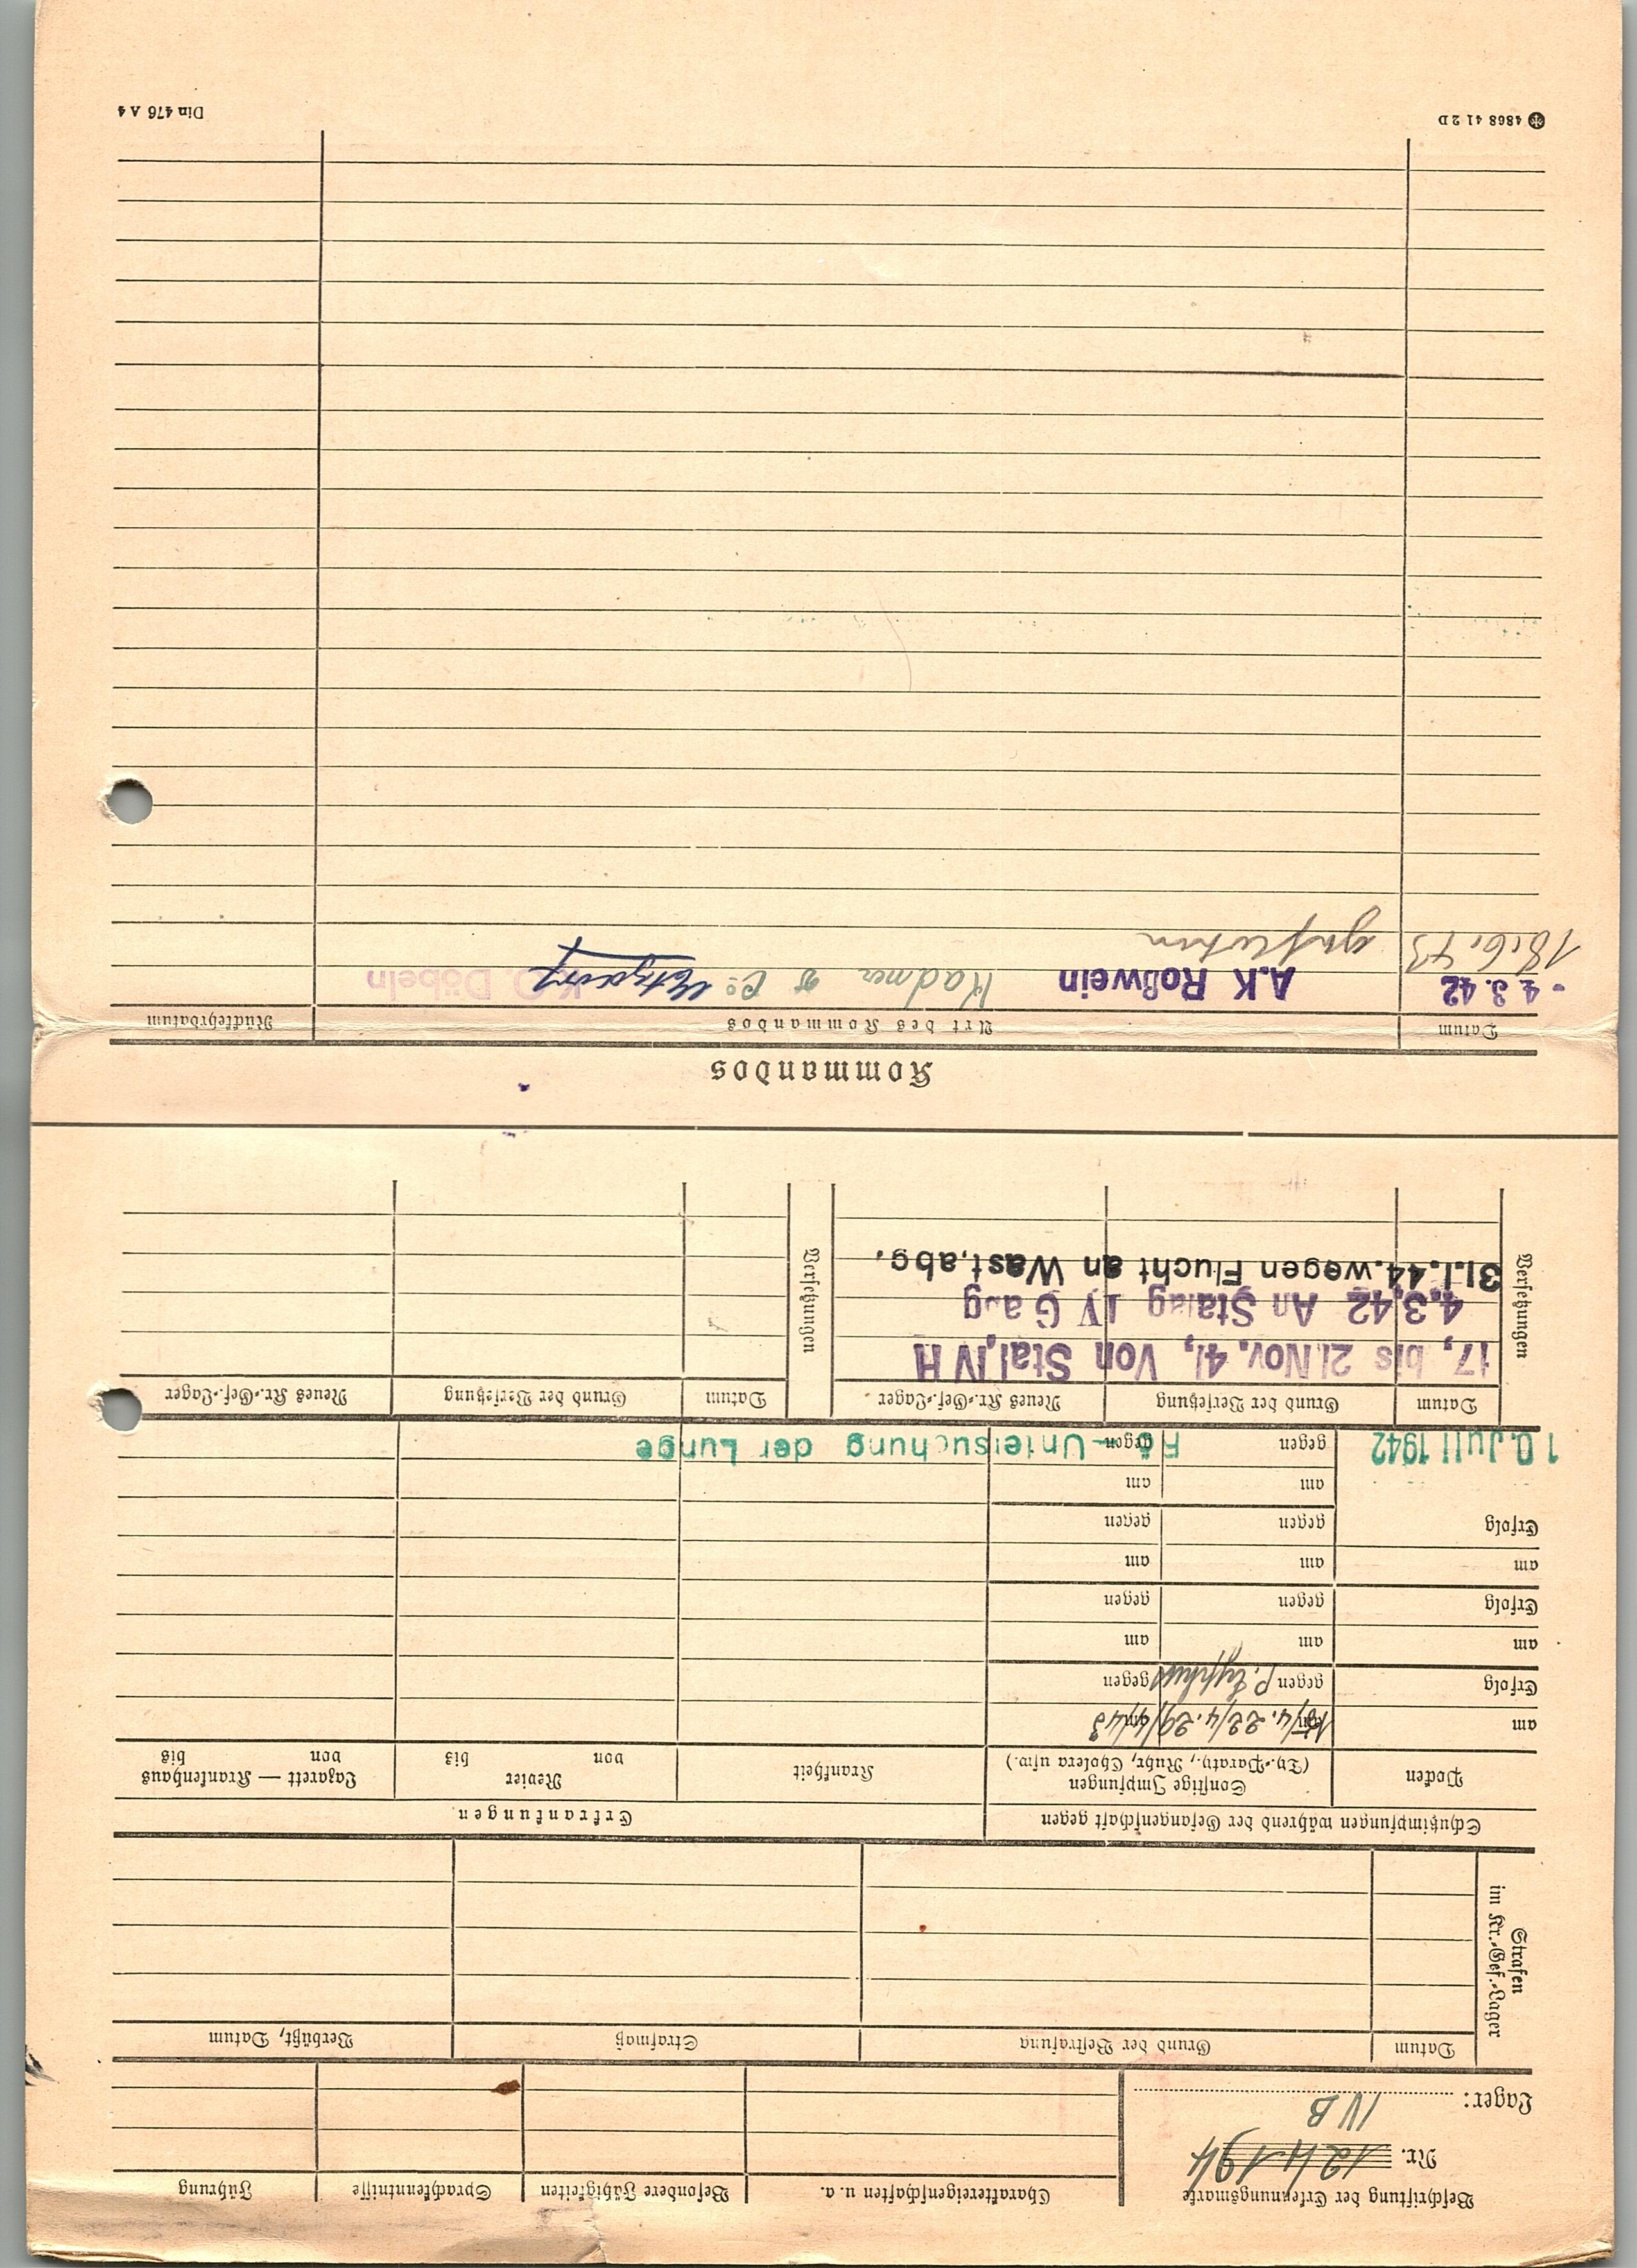 Beschriftung der Erkennungsmarke
Nr. 124194
Lager: IV B
Charaktereigenschaften u. a.
Besondere Fähigkeiten
Sprachkenntnisse
Führung
Strafen
im Kr.-Gef.-Lager
Datum
Grund der Bestrafung
Strafmaß
Verbüßt, Datum
Schutzimpfungen während der Gefangenschaft gegen
Erkrankungen
Pocken
Sonstige Impfungen
(Ty.-Paraty., Ruhr, Cholera usw.)
Krankheit
Revier
von bis
Lazarett — Krankenhaus
von bis
am
am 15/4. 22/4. 29/4 43
am
Erfolg
gegen P. Typhus
gegen
am
am
am
Erfolg
gegen
gegen
am
am
am
Erfolg
gegen
gegen
am
am
10. Juli 1942
gegen
gegen
Rö-Untersuchung der Lunge
Versetzungen
Datum
Grund der Versetzung
Neues Kr.-Gef.-Lager
Versetzungen
Datum
Grund der Versetzung
Neues Kr.-Gef.-Lager
17. bis 21.Nov. 41, Von Stal,IV H
4.3.42 An Stalag IV G abg
31.1.44.wegen Flucht an Wast.abg.
Kommandos
Datum
Art des Kommandos
Rückkehrdatum
- 4. 3. 42
A.K Roßwein
& Co
K.O. Döbeln
18.6.43
geflohen
4868 41 2 D
Din 476 A 4